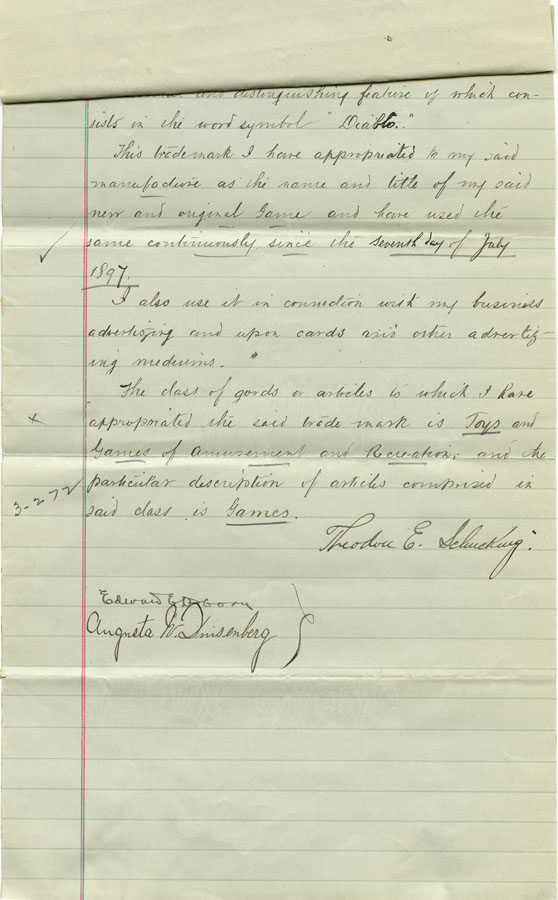 and distinguishing feature of which con-
sists in the word symbol "Diablo."
This trademark I have appropriated to my said
manufacture as the name and title of my said
new and original Game and have used the
same continuously since the seventh day of July
1897.
I also use it in connection with my business
advertizing and upon cards and other advertiz-
ing mediums.
The class of goods or articles to which I have
appropriated the said trade mark is Toys and
Games of Amusement and Recreation; and the
particular description of articles comprized in
3-272
said class is Games.
Theodore E. Schucking.
Edward
Augusta W. Duisenberg